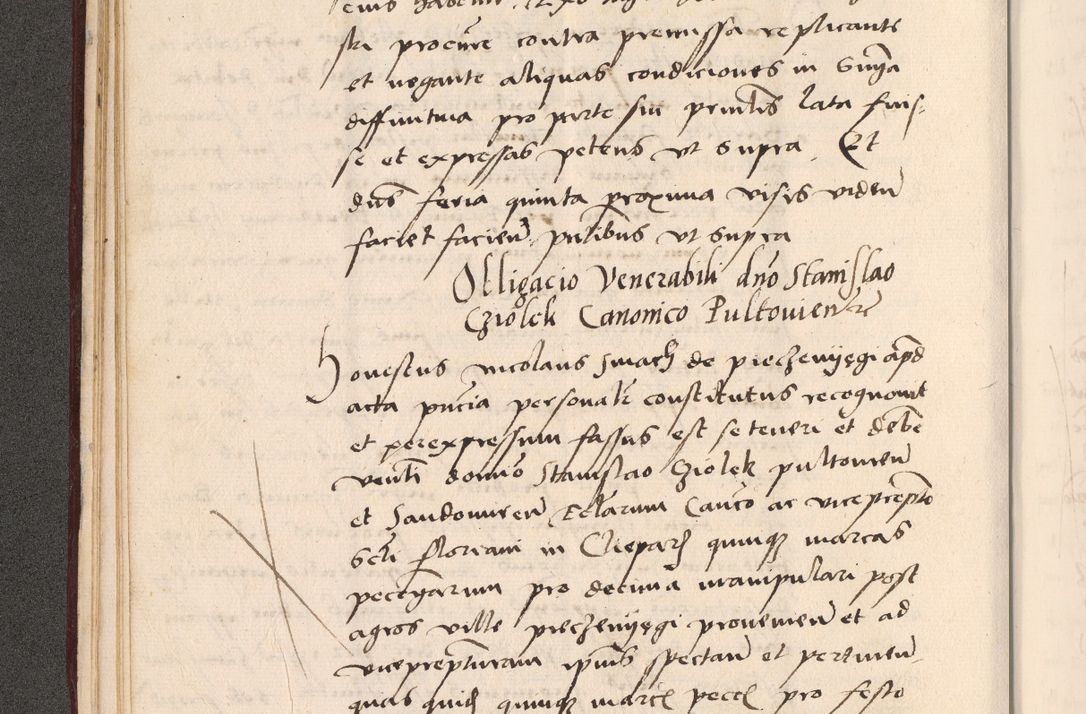 sti procure contra premissa replicante
et negante aliquas condiciones in Snia
diffinitiua pro parte sui prinlis lata fuis-
se et expressas petens vt supra. Et
dns feria quinta proxima visis viden
faciet facien. pntibus vt supra
Obligacio Venerabili dno Stanislao
Cziolek Canonico Pultouien
Honestus nicolaus Smach de pieczenyegi apd
acta pncia personalr constitutus recognouit
et per expressum fassus est se teneri et debe
venli domio Stanislao Cziolek pultouien
et Sandomiren Ecclarum Canco ac viceprepto
Scti Floriani in Clepar quinqz marcas
pecegarum pro decima manipulari post
agros ville pieczenyegi prouenien et ad
viceprepturam ipius spectan et pertinen
quas quid quinqz marc pecc pro festo